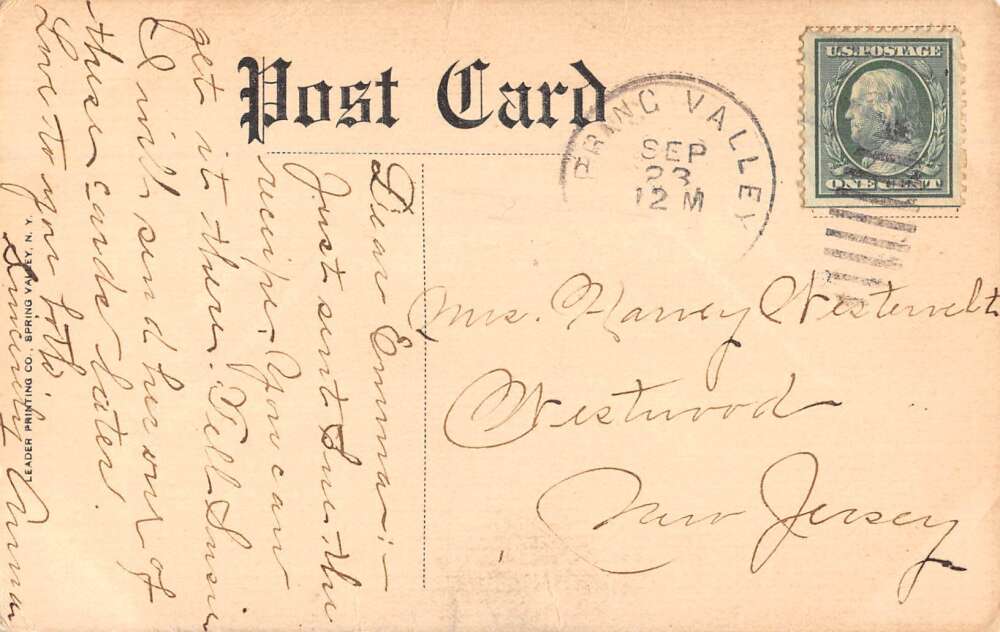 Post Card
PRING VALLEY
SEP
23
12 M
U.S. POSTAGE
ONE CENT
Dear Emma:-
Just sent Sue the
recipe. You can
get it there. Tell Susie
I will send her one of
these cards later.
Love to you both
Sincerely Anna
Mrs. Harvey Westervelt
Westwood
New Jersey
LEADER PRINTING CO., SPRING VALLEY, N. Y.